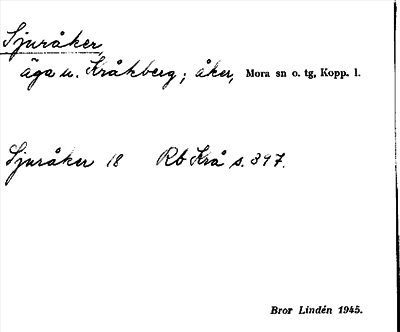 Sjuråker,
äga u. Kråkberg; åker, Mora sn o. tg, Kopp. l.
Sjuråker 18 Rb Krå s. 397.
Bror Lindén 1945.